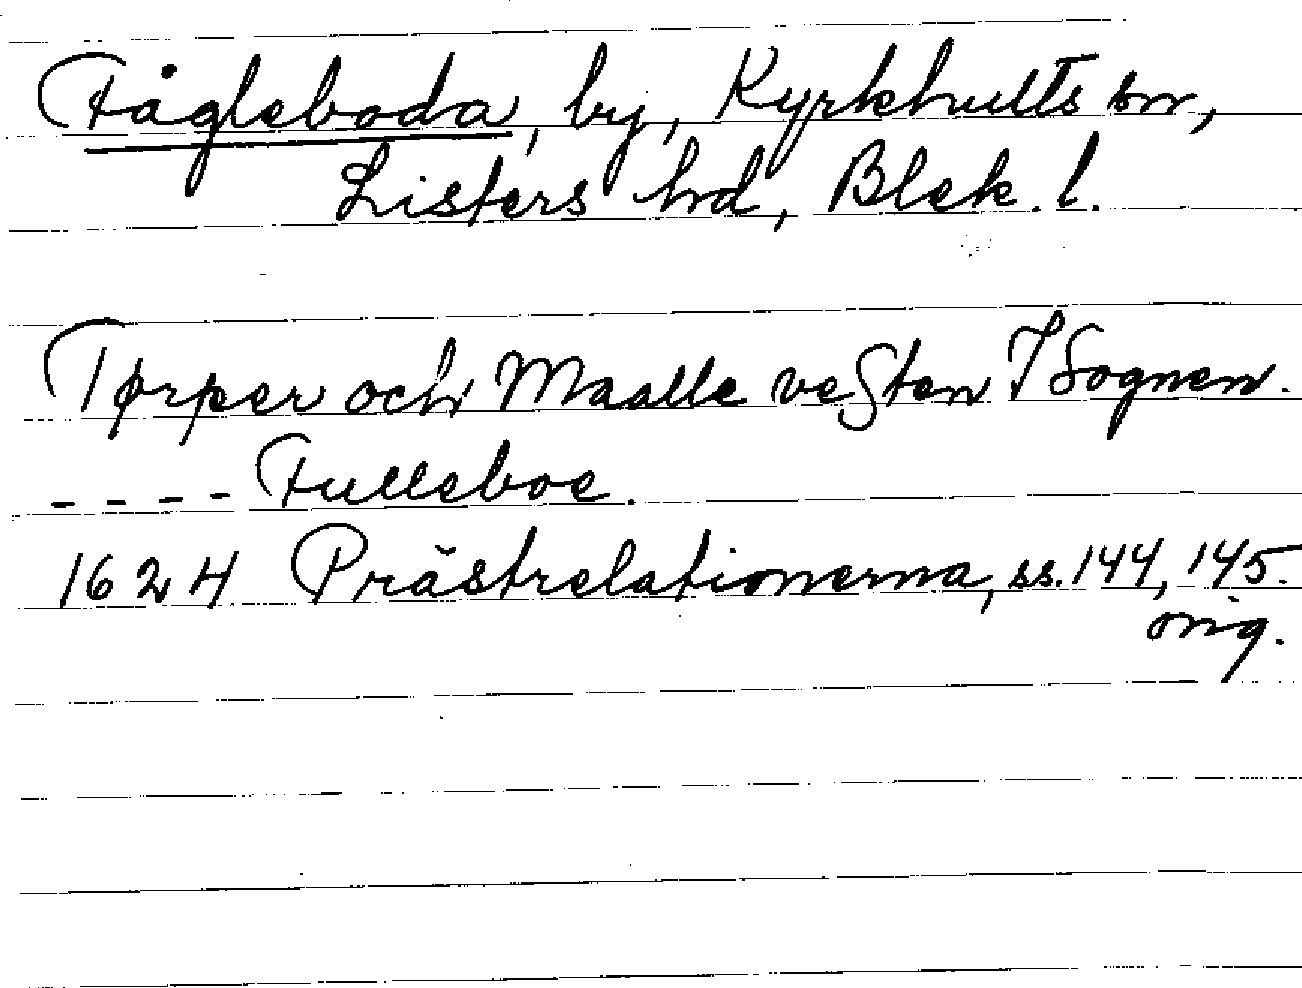 Fågleboda, by, Kyrkhults sn,
Listers hd, Blek. l.
Tørper och Maalle vesten I Sognen.
- - - - Fulleboe.
1624 Prästrelationerna, ss. 144, 145.
orig.